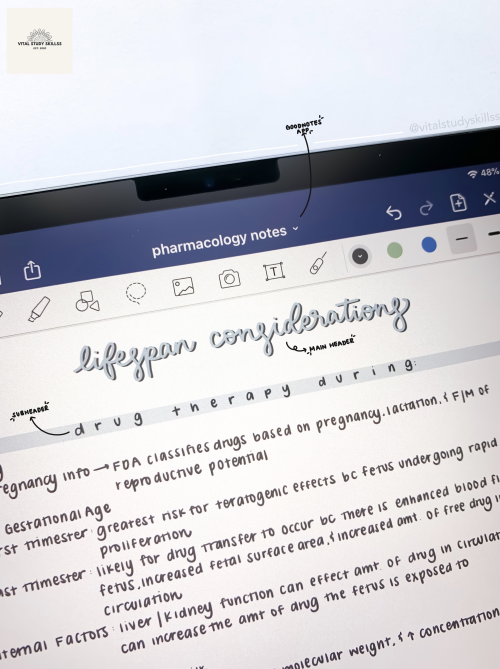 VITAL STUDY SKILLSS
@vitalstudyskillss
GOODNOTES APP
48%
pharmacology notes
T
lifespan considerations
MAIN HEADER
SUBHEADER
drug therapy during:
egnancy info → FDA classifies drugs based on pregnancy, lactation, & F/M of
reproductive potential
Gestational Age
rst Trimester: greatest risk for teratogenic effects bc fetus undergoing rapid
proliferation
ast Trimester: likely for drug transfer to occur bc there is enhanced blood fl
fetus, increased fetal surface area, & increased amt. of free drug i
circulation
ternal Factors: liver/kidney function can effect amt. of drug in circulat
can increase the amt of drug the fetus is exposed to
molecular weight, & ↑ concentration